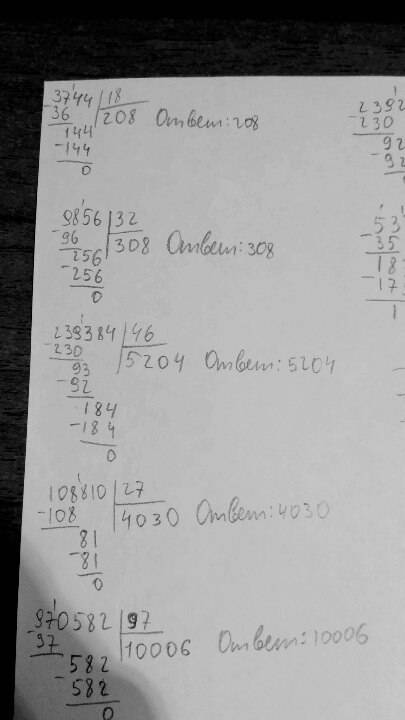 3744 | 18
36 208 Ответ: 208
144
-144
0
9856 | 32
-96 308 Ответ: 308
256
-256
0
239384 | 46
-230 5204 Ответ: 5204
93
-92
184
-184
0
108810 | 27
-108 4030 Ответ: 4030
81
-81
0
970582 | 97
-97 10006 Ответ: 10006
582
-582
0
2392
-230
92
-92
53
-35
18
-17
1